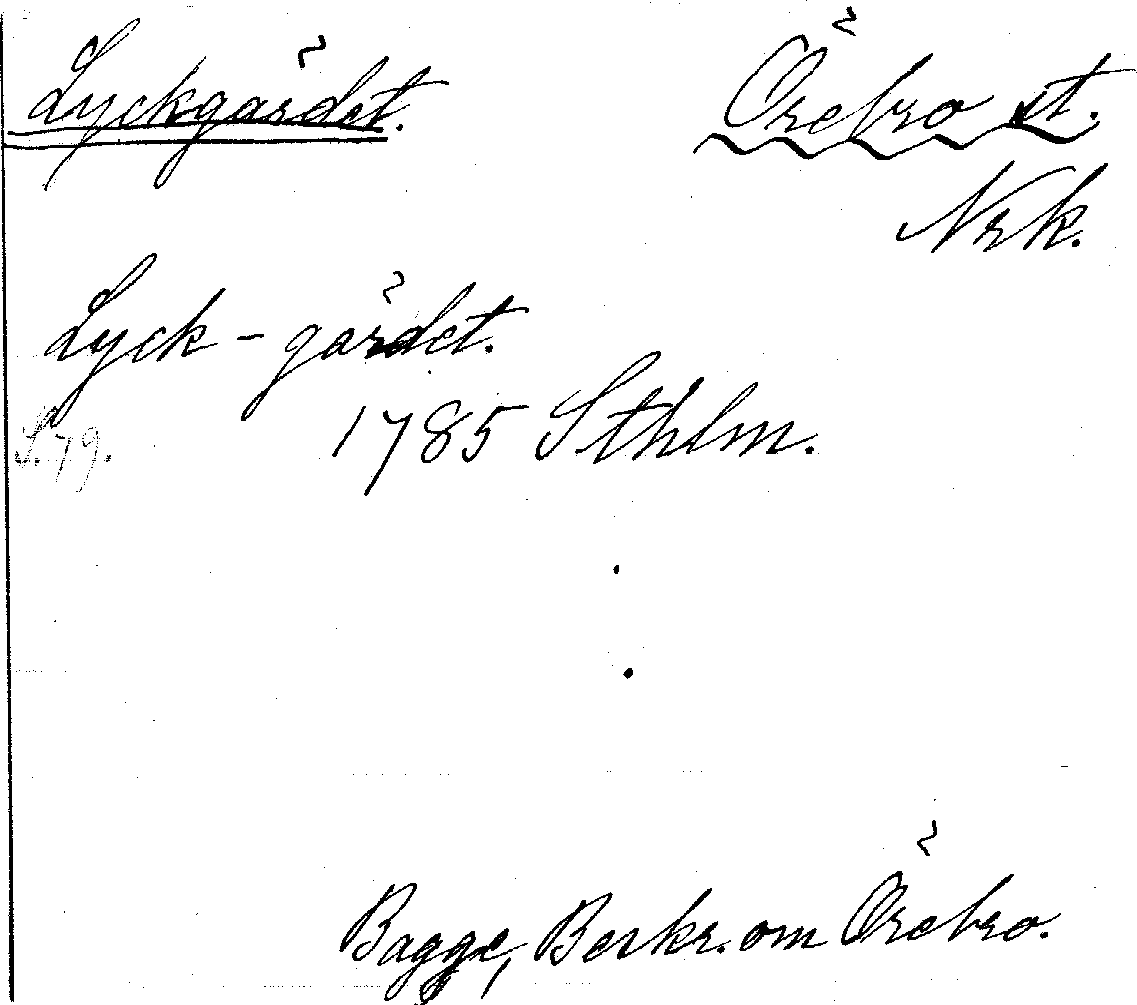 Lyckgärdet. Örebro st.
Nrk.
Lyck-gärdet.
S. 79. 1785 Sthlm.
Bagge, Beskr. om Örebro.